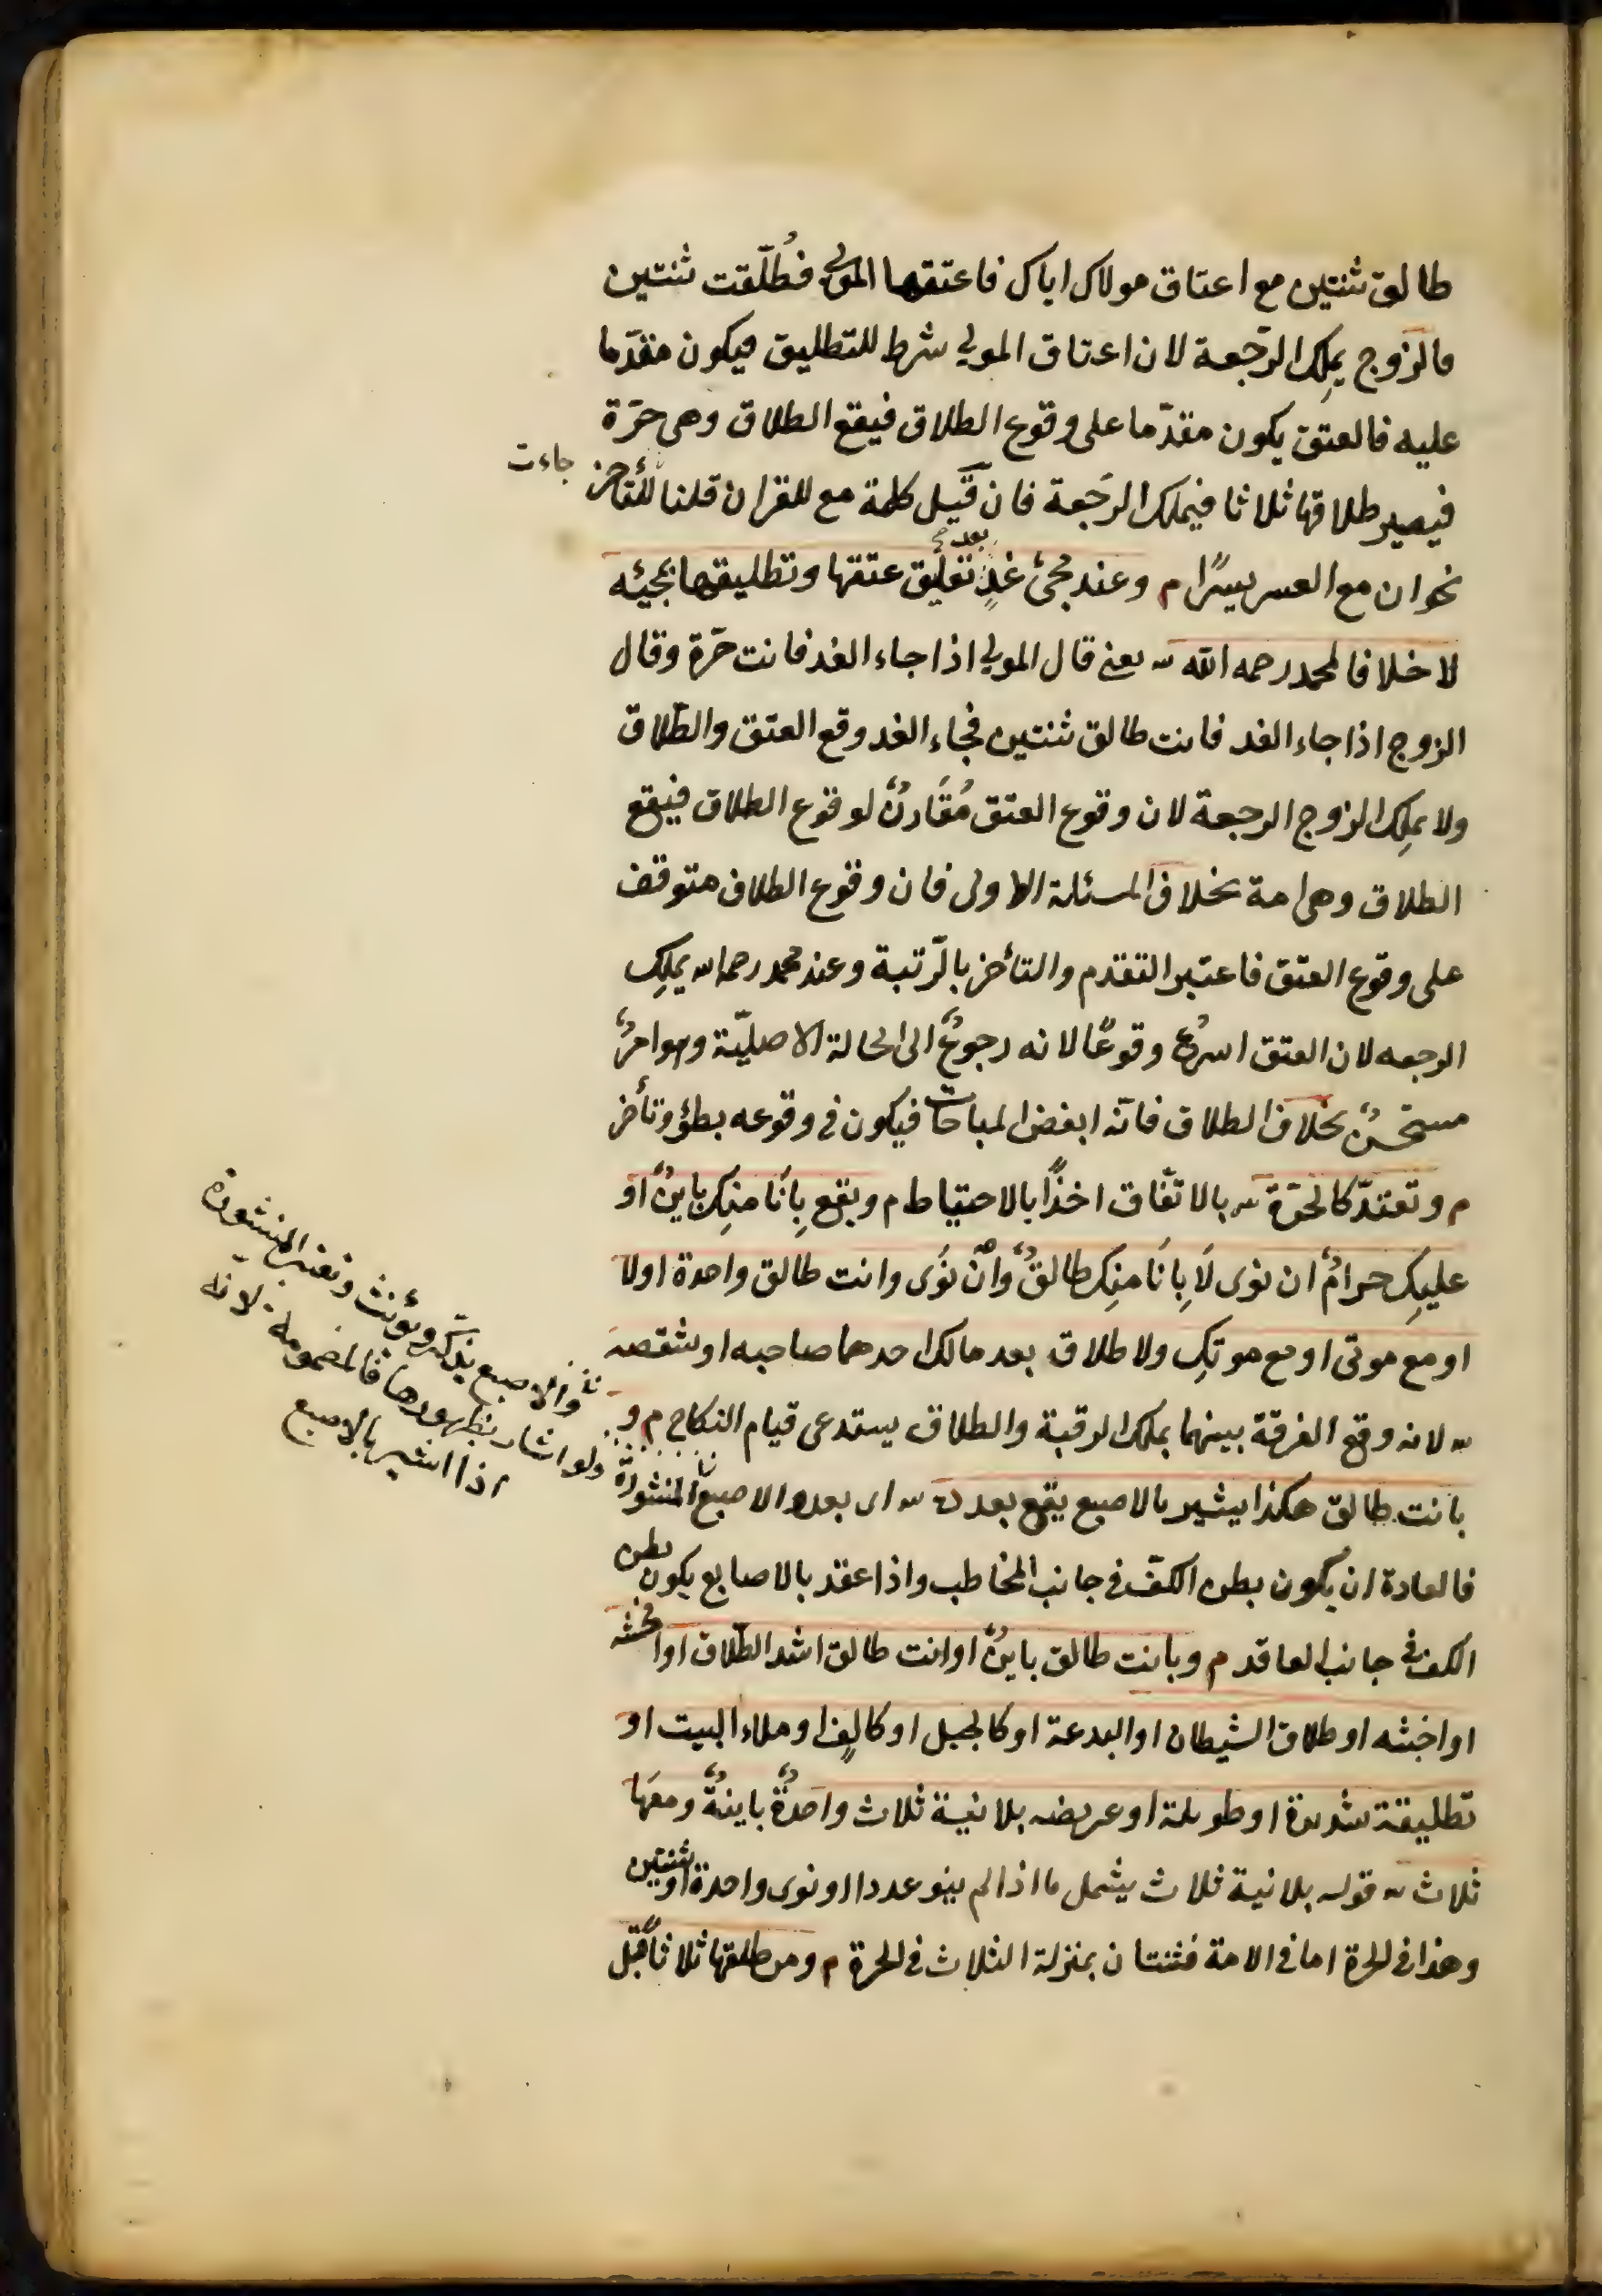 طالق ثنتين مع اعتاق مولاك اياك فاعتقها المولى فطُلّقت ثنتين
فالزوج يملِك الرّجعة لان اعتاق المولى شرط للتطليق فيكون مقدّما
عليه فالعتق يكون مقدّما على وقوع الطلاق فيقع الطلاق وهى حرّة
فيصير طلاقها ثلاثا فيملك الرَجعة فان قيل كلمة مع للقران قلنا للتأخر جاءت
نحو ان مع العسر يسرًا م وعند مجئ غدٍ بعد تعليق عتقها وتطليقها بمجيئه
لا خلافا لمحمد رحمه الله ش يعنى قال المولى اذا جاء الغد فانت حرّة وقال
الزوج اذا جاء الغد فانت طالق ثنتين فجاء الغد وقع العتق والطّلاق
ولا يملِك الزوج الرجعة لان وقوع العتق مُقَارنٌ لوقوع الطلاق فيقع
الطلاق وهى امة بخلاف المسئلة الاولى فان وقوع الطلاق متوقف
على وقوع العتق فاعتبر التقدم والتأخر بالرّتبة وعند محمد رحمه الله يملِك
الرجعه لان العتق اسرُع وقوعًا لانه رجوعٌ الى الحالة الاصليّة وهو امرٌ
مستحسنٌ بخلاف الطلاق فانّه ابغض المباحات فيكون فى وقوعه بطؤ وتأخر
م وتعتدّ كالحرّة ش بالاتّفاق اخذًا بالاحتياط م ويقع بِأنَا منِك باينٌ او
عليكِ حرامٌ ان نوى لَا بِانَا منِك طالقٌ وانْ نَوَى وانت طالق واحدة اولا
او مع موتى او مع موتكِ ولا طلاق بعد ما لك احدهما صاحبه او شقصه
ش لانه وقع الفرقة بينهما بملك الرقبة والطلاق يستدعى قيام النكاح م و
بانت طالق هكذا يشير بالاصبع يقع بعدده ش اى بعدد الاصبع المنشورة
فالعادة ان يكون بطن الكفّ فى جانب المخاطب واذا عقد بالاصابع يكون بطن
الكف فى جانب العاقد م وبانت طالق باينٌ او انت طالق اشد الطّلاق او افحشه
او اخبثه او طلاق الشيطان او البدعة او كالجبل او كالفٍ او ملاء البيت او
تطليقة شديدة او طويلة او عريضه بلا نية ثلاث واحدةٌ باينةٌ ومعَها
ثلاث ش قوله بلا نية ثلاث يشمل ما اذا لم ينو عددا او نوى واحدة او ثنتين
وهذا فى الحرة اما فى الامة فثنتان بمنزلة الثلاث فى الحرة م ومن طلقها ثلاثاً قبل
والاصبع يذكّر ويؤنث وتعتبر المنشورة
ولو اشار بظهورها فالمضمومة لانه
اذا اشير بالاصبع